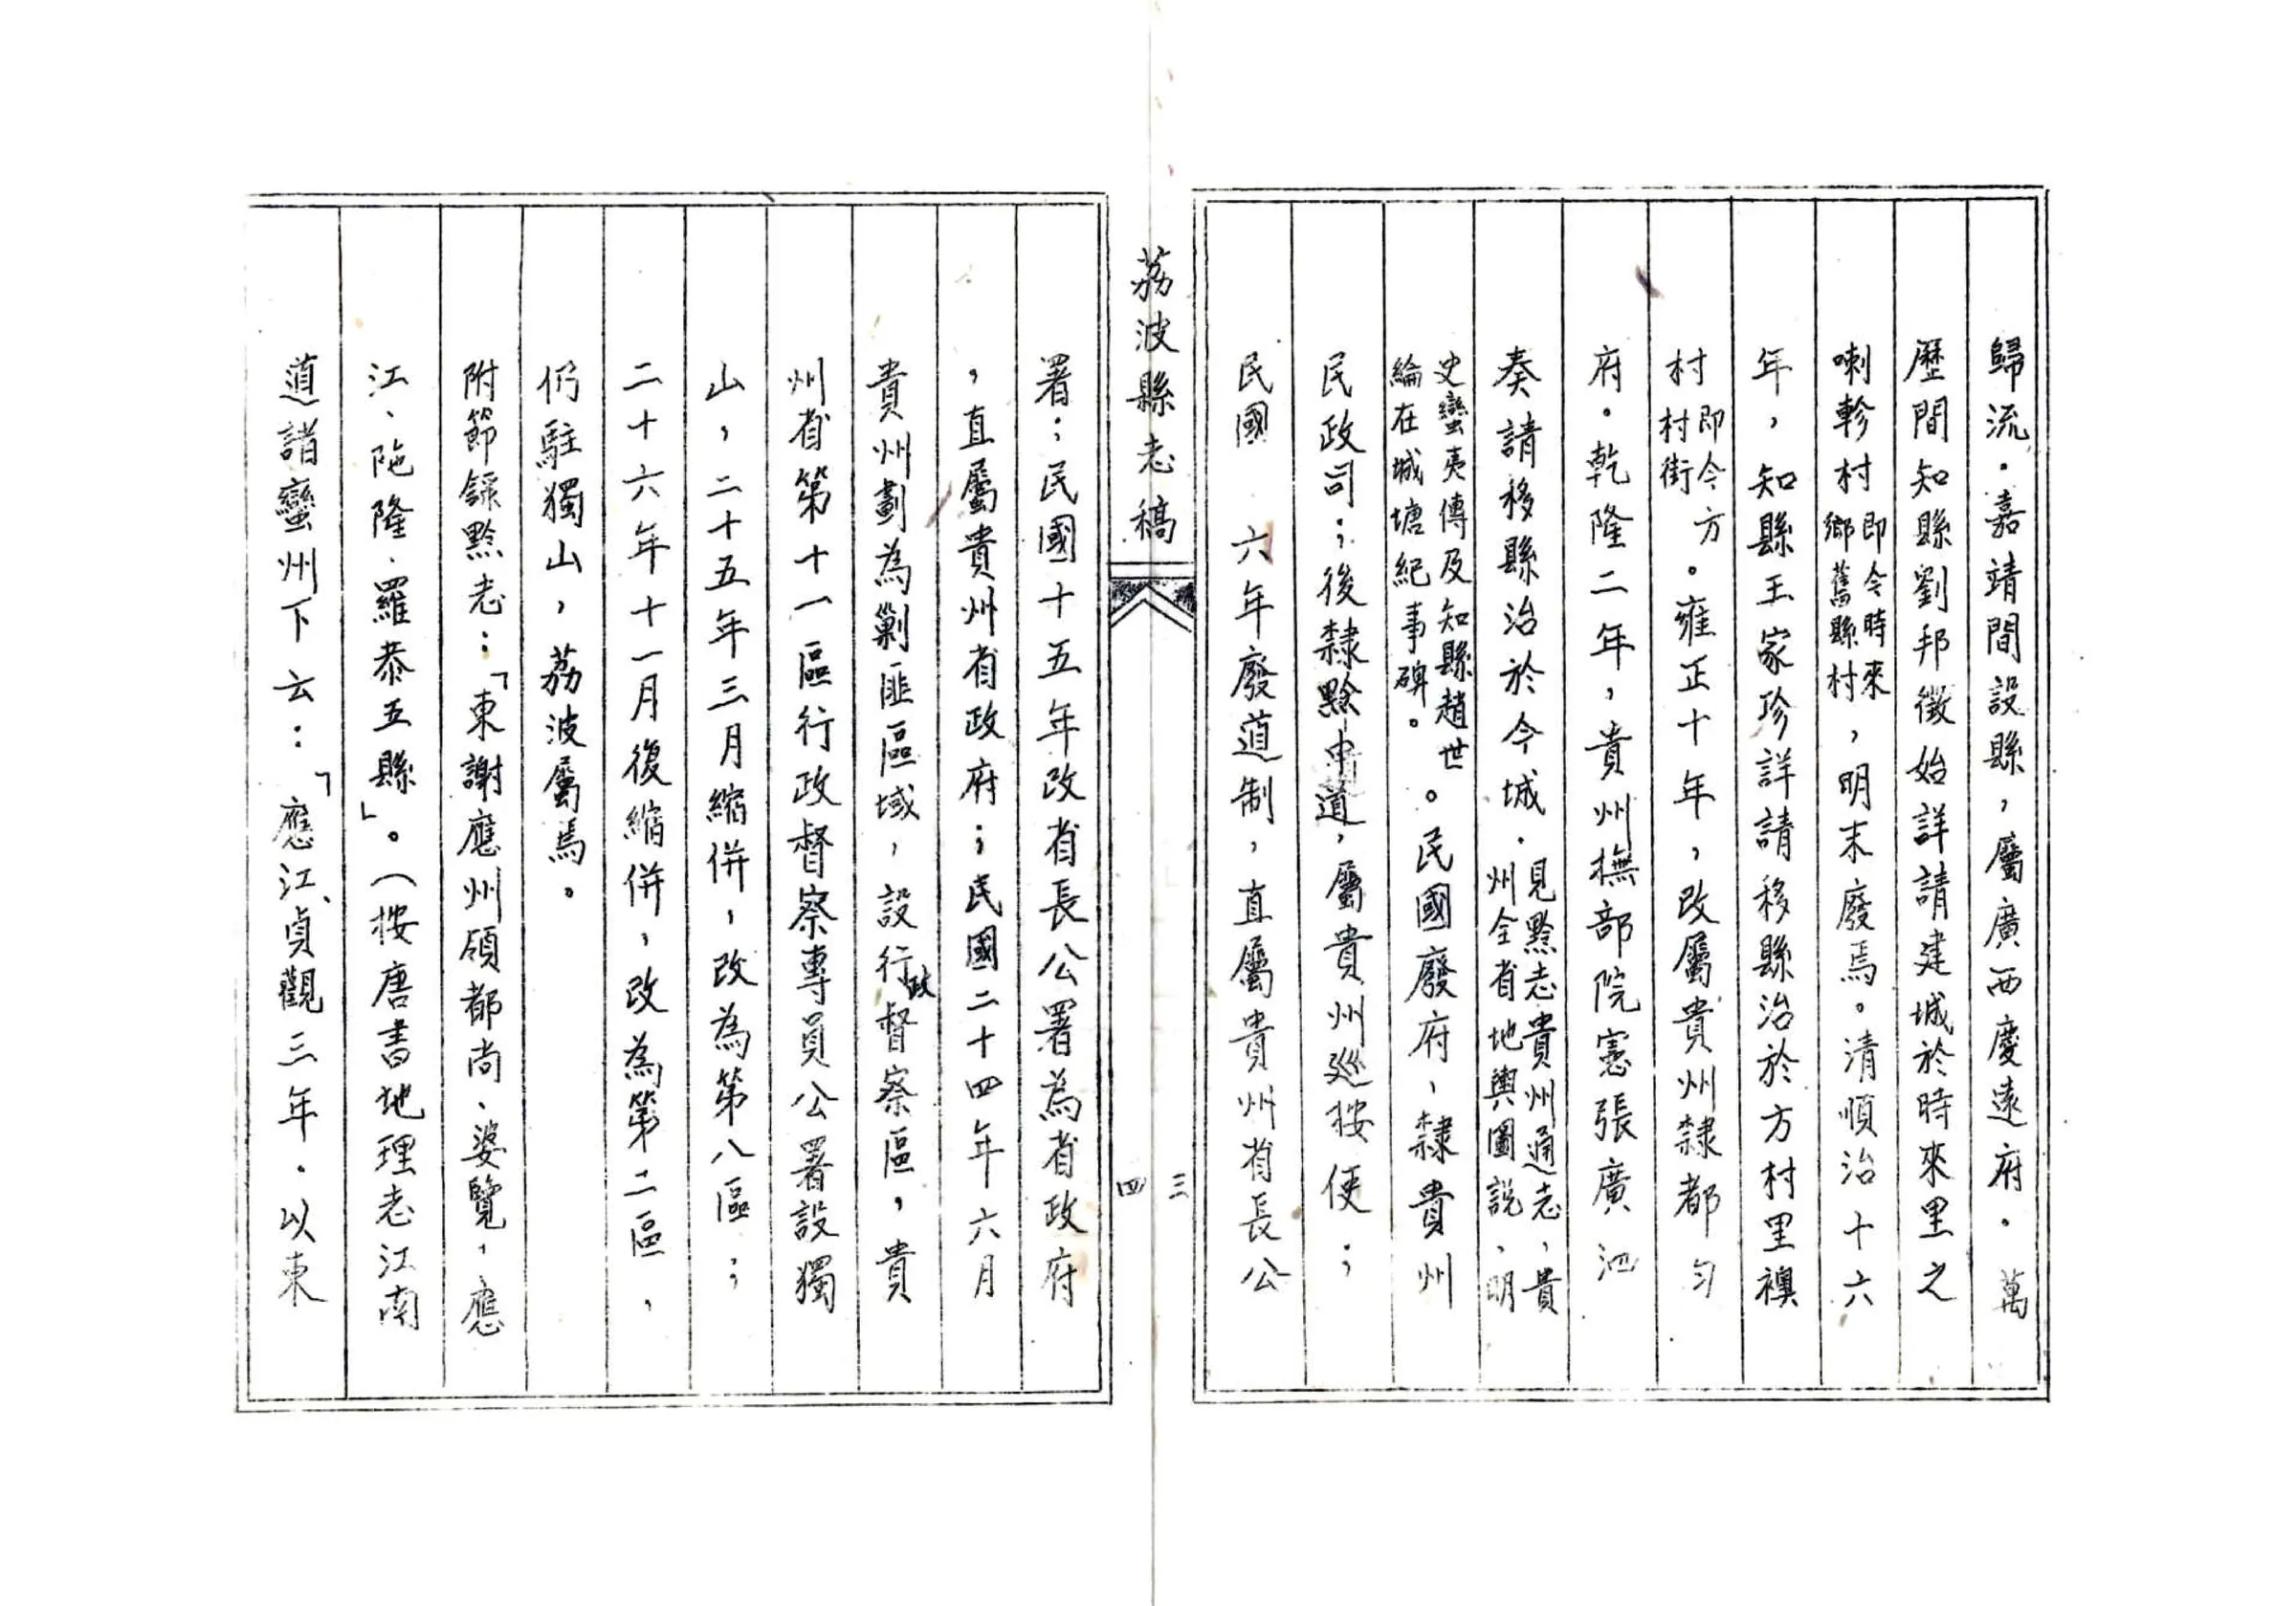 歸流．嘉靖間設縣，屬廣西慶遠府．萬
歷間知縣劉邦徵始詳請建城於時來里之
喇軫村即今時來鄉舊縣村，明末廢焉。清順治十六
年，知縣王家珍詳請移縣治於方村里襖
村即今方村街。雍正十年，改屬貴州隸都勻
府．乾隆二年，貴州撫部院憲張廣泗
奏請移縣治於今城．見黔志貴州通志，貴州全省地輿圖說，明
史蠻夷傳及知縣趙世綸在城塘紀事碑。。民國廢府，隸貴州
民政司；後隸黔中道，屬貴州巡按使；
民國　六年廢道制，直屬貴州省長公
荔波縣志稿
三
四
署；民國十五年改省長公署為省政府
，直屬貴州省政府；民國二十四年六月
貴州劃為剿匪區域，設行政督察區，貴
州省第十一區行政督察專員公署設獨
山，二十五年三月縮併，改為第八區；
二十六年十一月復縮併，改為第二區，
仍駐獨山，荔波屬焉。
附節錄黔志：「東謝應州領都尚、婆覽，應
江、陁隆、羅恭五縣」。（按唐書地理志江南
道諸蠻州下云：「應江、貞觀三年．以東